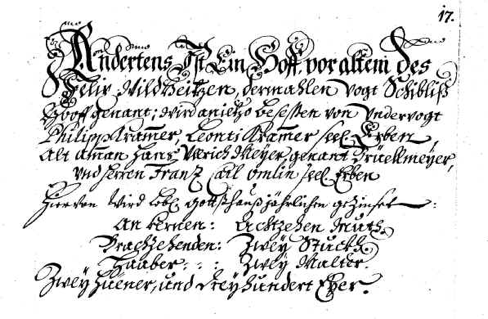 17.
Andertens Ist Ein Hoff, vor altem des
Felix Wildheitzen, dermahlen Vogt Schibliß
Hooff genant; wird anietzo besessen von Undervogt
Philipp Kramer, Leonti Kramer seel. Erben,
Alt Amman Hans Ulrich Meÿer, genant Brüellmeÿer,
Und Herren Frantz Omlin seel. Erben
Hiervon Wird Lobl. Gottshauß jährlichen gezinset:
An Kernen: Achtzehen Mütt.
Zweÿ Stuckh.
Haaber: Zweÿ Malter.
Zweÿ Hüener, und dreÿhundert Eÿer.